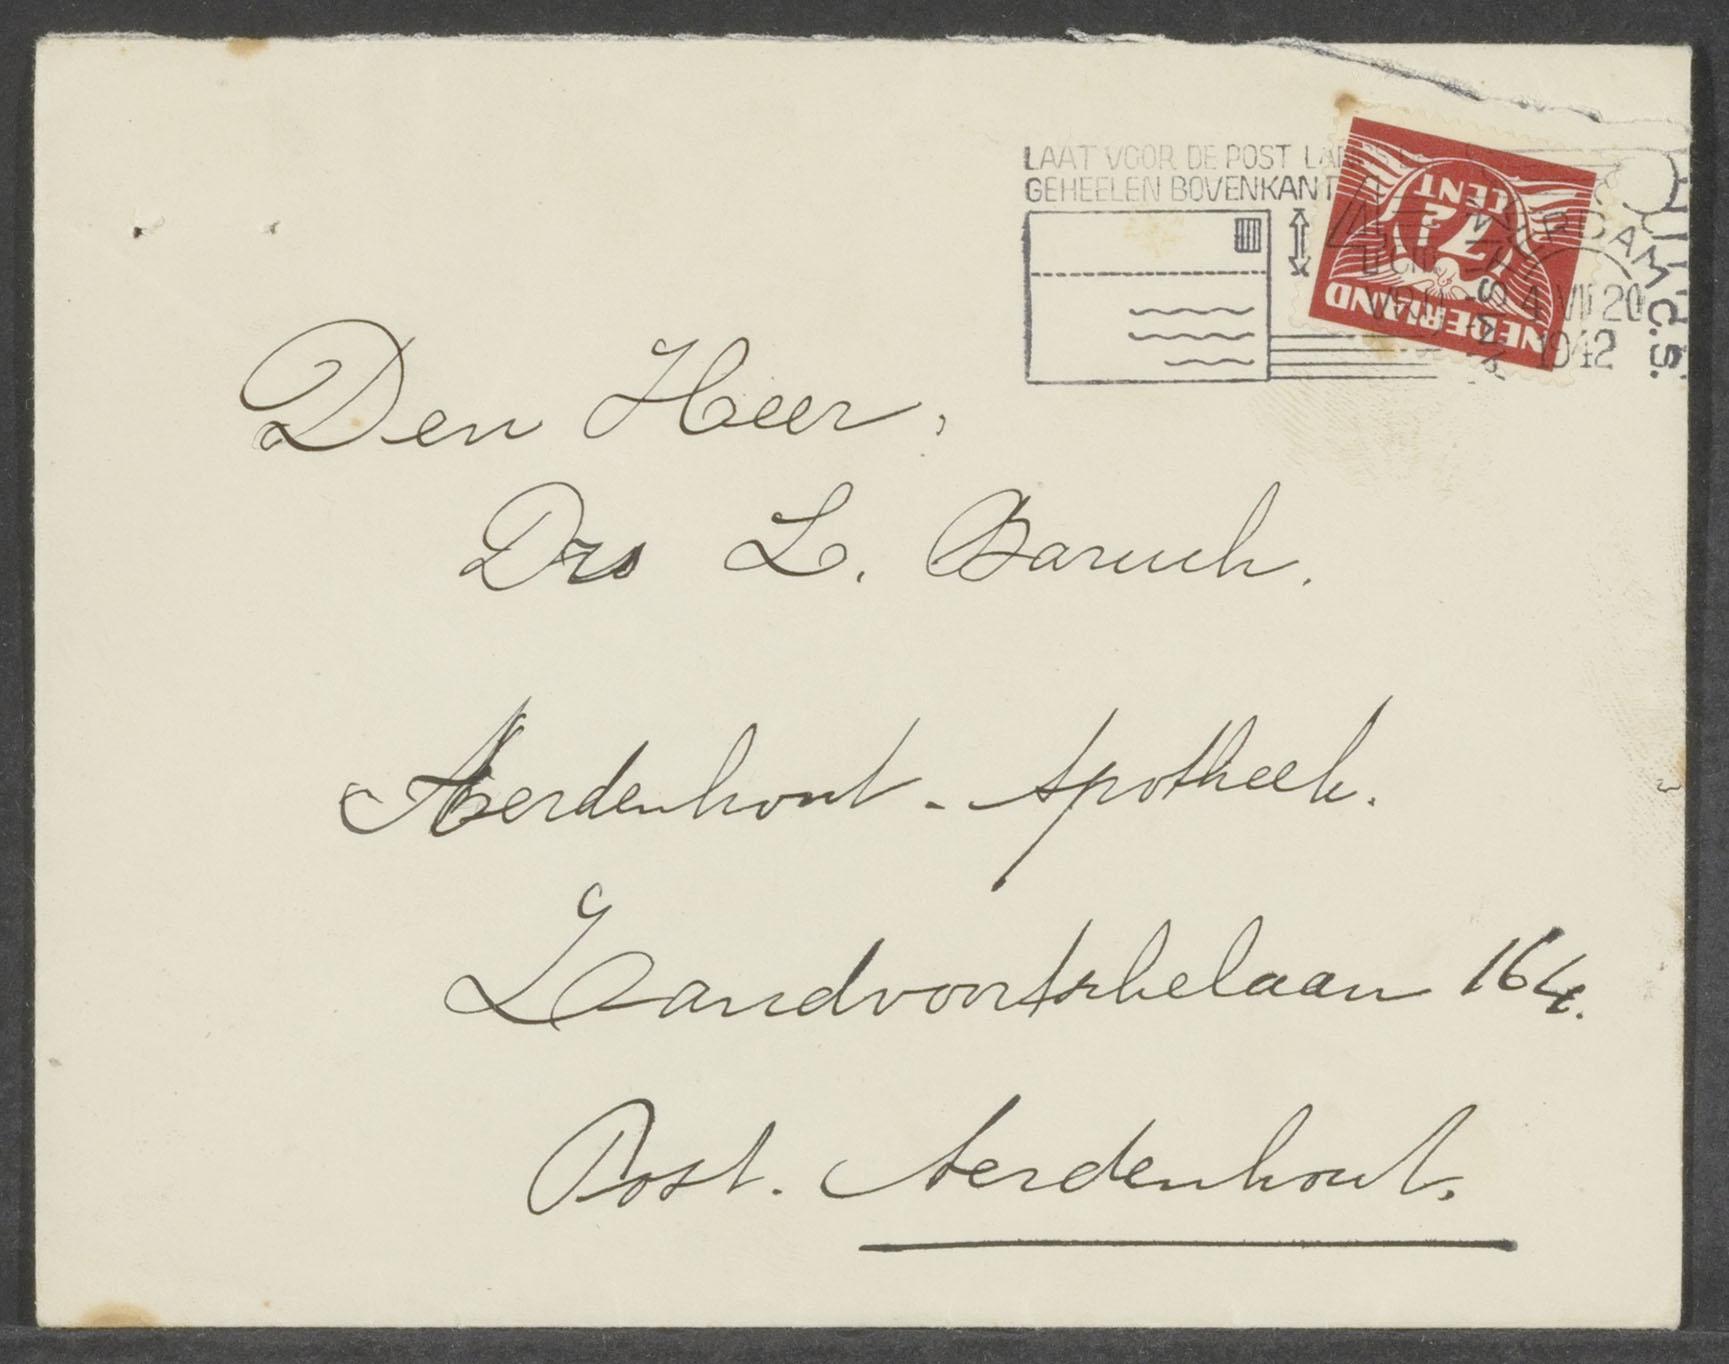 LAAT VOOR DE POST LANGS
GEHEELEN BOVENKANT
4
CM
VRIJ
7½
CENT
NEDERLAND
AMSTERDAM C.S.
4 VII 20
1942
Den Heer,
Drs L. Baruch.
Aerdenhout - Apotheek.
Zandvoortschelaan 164.
Post. Aerdenhout.